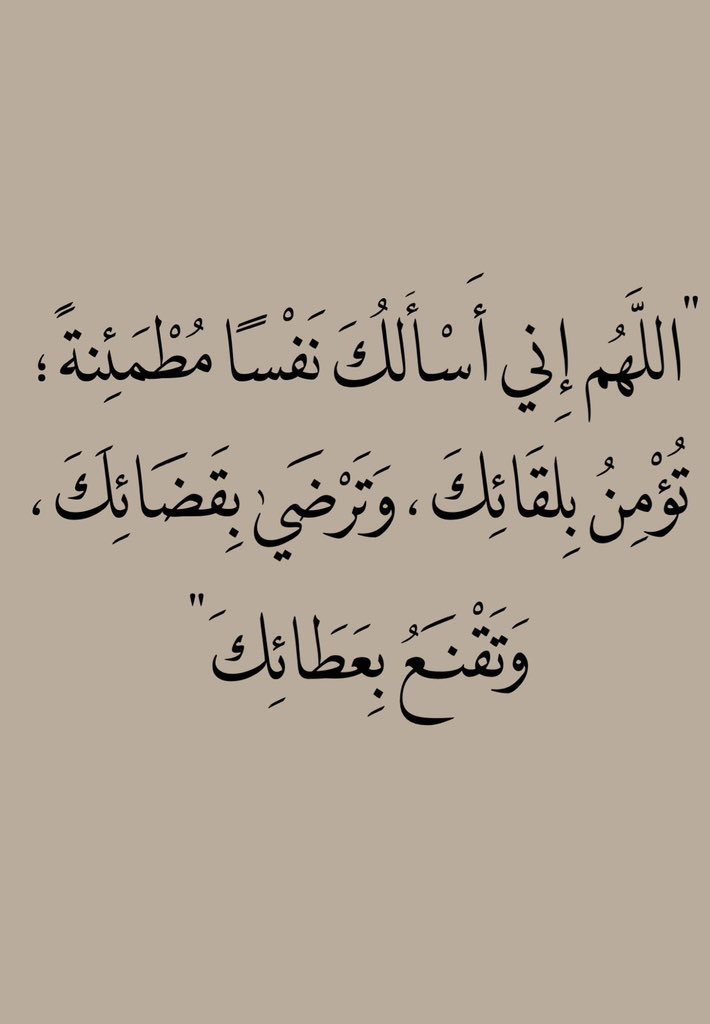 "اللَّهُم إِني أَسْأَلُكَ نَفْسًا مُطْمَئِنةً ؛
تُؤْمِنُ بِلقَائِكَ ، وَتَرْضَي بِقَضَائِكَ ،
وَتَقْنَعُ بِعَطَائِكَ"